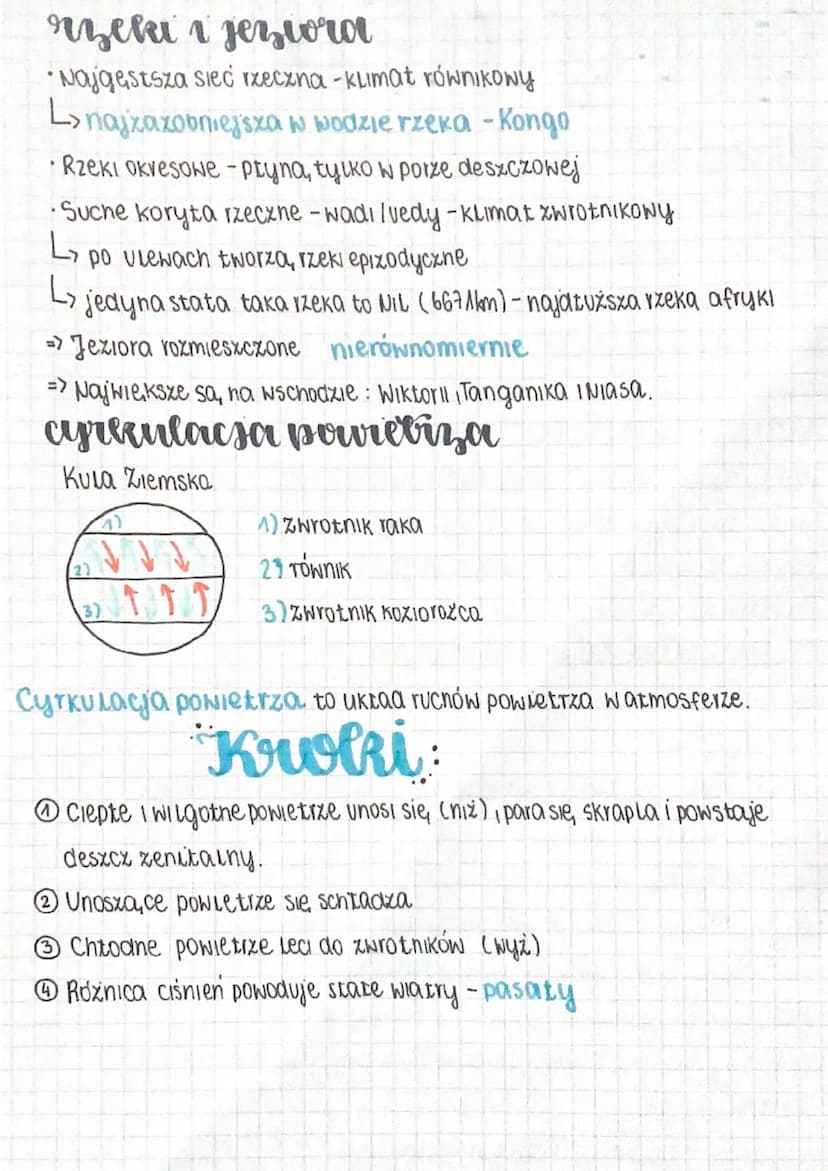 rzeki i jeziora
· Najgęstsza sieć rzeczna - klimat równikowy
↳ najzasobniejsza w wodzie rzeka - Kongo
· Rzeki okresowe - płyną tylko w porze deszczowej
· Suche koryta rzeczne - wadi/uedy - klimat zwrotnikowy
↳ po ulewach tworzą rzeki epizodyczne
↳ jedyna stała taka rzeka to Nil (6671km) - najdłuższa rzeka afryki
=> Jeziora rozmieszczone nierównomiernie
=> Największe są na wschodzie : Wiktorii, Tanganika i Niasa.
cyrkulacja powietrza
Kula Ziemska
1)
2)
3)
1) Zwrotnik raka
2) równik
3) zwrotnik koziorożca
Cyrkulacja powietrza to układ ruchów powietrza w atmosferze.
Kroki:
① Ciepłe i wilgotne powietrze unosi się (niż), para się skrapla i powstaje
deszcz zenitalny.
② Unoszące powietrze się schładza
③ Chłodne powietrze leci do zwrotników (wyż)
④ Różnica ciśnień powoduje stałe wiatry - pasaty